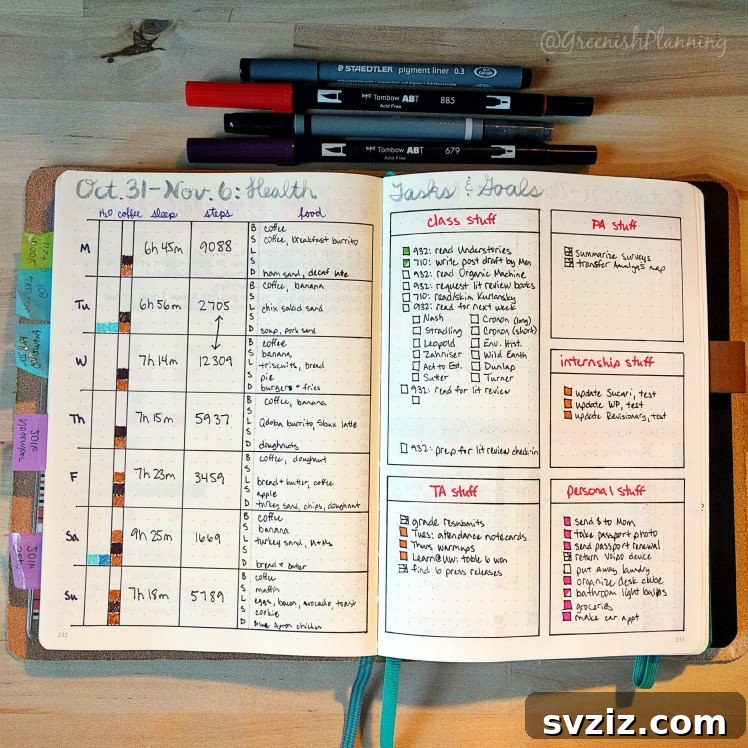 @GreenishPlanning
STAEDTLER pigment liner 0.3
Tombow ABT 885
Acid Free
Tombow ABT 679
Acid Free
Oct. 31-Nov. 6: Health
H2O coffee sleep steps food
M
6h 45m
9088
B coffee
S coffee, breakfast burrito
L
S
D ham sand, decaf latte
Tu
6h 56m
2705
B coffee, banana
S
L chix salad sand
S
D soup, pork sand
W
7h 14m
12309
B coffee
S banana,
L triscuits, bread
S pie
D burgers + fries
Th
7h 15m
5937
B coffee, banana
S
L Qdoba burrito, Sbux latte
S
D doughnuts
F
7h 23m
3459
B coffee, doughnut
S
L bread + butter, coffee
S apple
D turkey sand, chips, doughnut
Sa
9h 25m
1669
B coffee
S banana
L turkey sand, M+Ms
S
D bread + butter
Su
7h 18m
5789
B coffee
S muffin
L eggs, bacon, avocado, toast
S cookie
D Blue Apron chicken
232
Tasks & Goals
class stuff
932: read Understories
710: write post draft by Mon
932: read Organic Machine
932: request lit review books
710: read/skim Kurlansky
932: read for next week
Nash Cronon (long)
Stradling Cronon (short)
Leopold Env. Hist.
Zahniser Wild Earth
Act to Est. Dunlap
Sutter Turner
932: read for lit review
932: prep for lit review check-in
PA stuff
summarize surveys
transfer Analysis map
internship stuff
update Sucuri, test
update WP, test
update Revisionary, test
TA stuff
grade resubmits
Tues: attendance notecards
Thurs warmups
Learn@UW: table 6 won
find 6 press releases
personal stuff
send $ to Mom
take passport photo
send passport renewal
return Voipo device
put away laundry
organize desk cube
bathroom light bulbs
groceries
make car appt
233
svziz.com